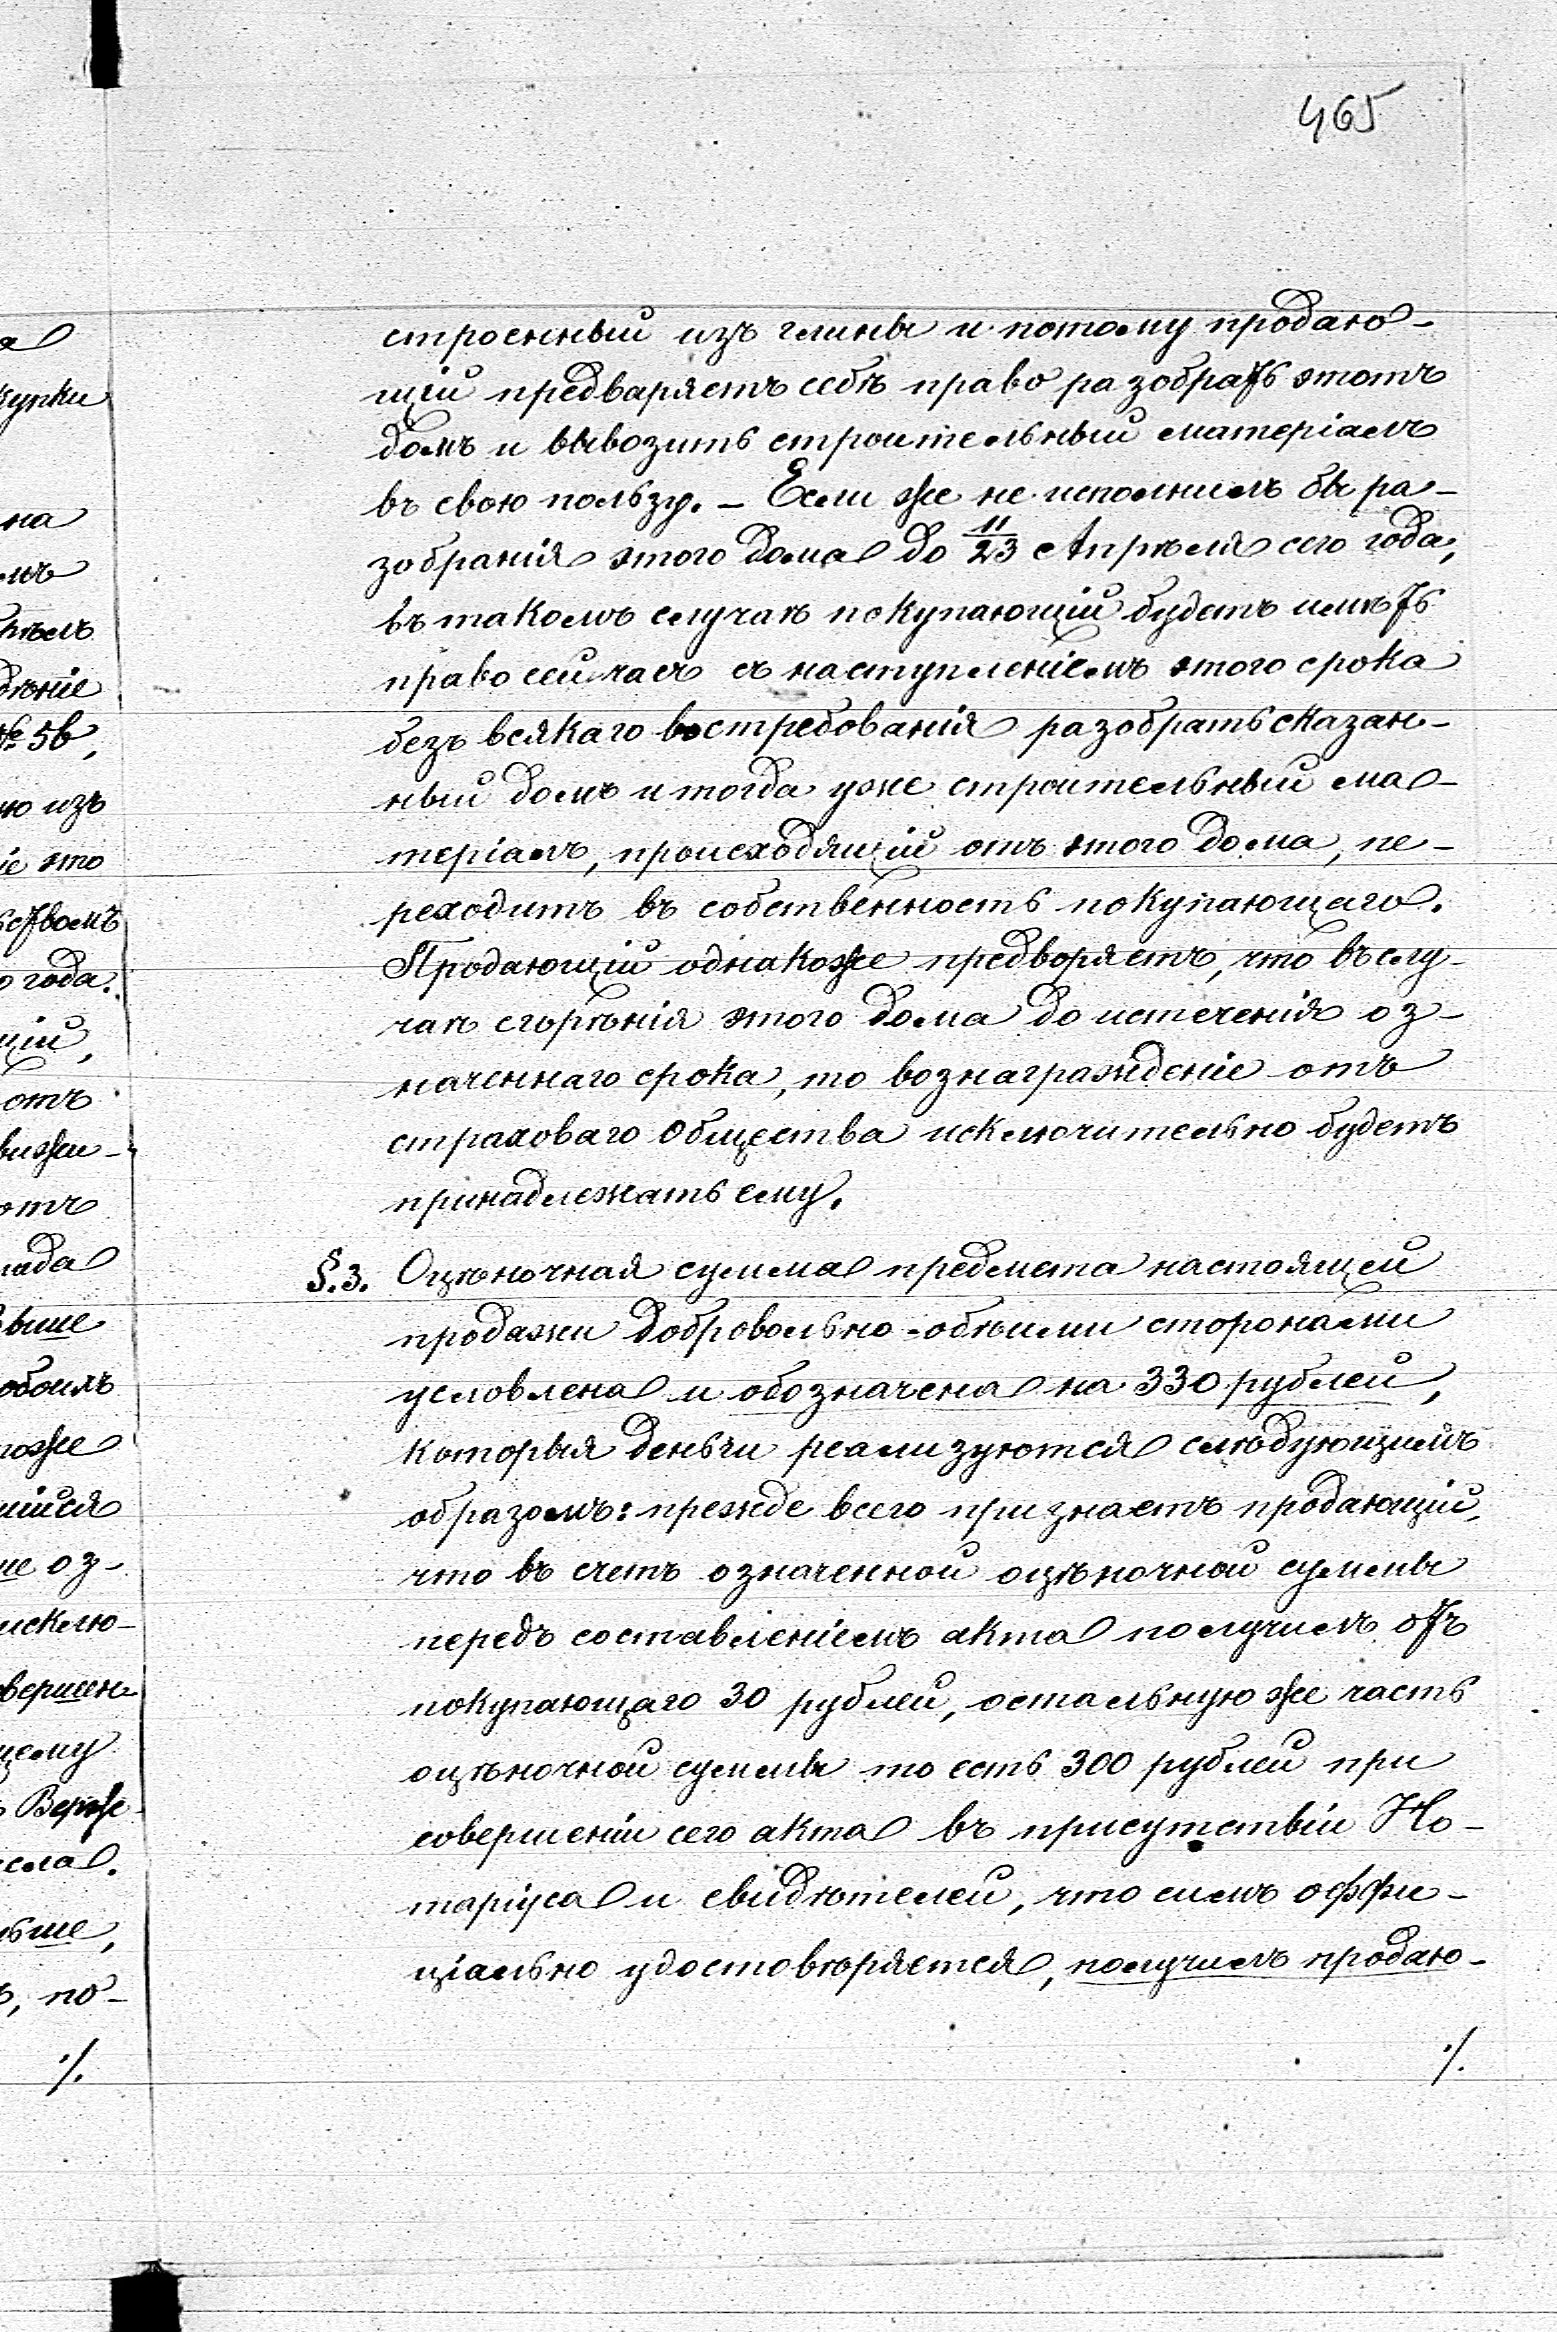 465
строенный изъ глины и потому продаю-
щій предваряетъ себѣ право разобрать этотъ
домъ и вывозить строительный матеріалъ
въ свою пользу. - Если же не исполнилъ бы ра-
зобранія этого дома до 11/23 Апрѣля сего года,
въ такомъ случаѣ покупающій будетъ имѣть
право сейчасъ съ наступленіемъ этого срока
безъ всякаго востребованія разобрать сказан-
ный домъ и тогда уже строительный ма-
теріалъ, происходящій отъ этого дома, пе-
реходитъ въ собственность покупающаго.
Продающій однакоже предворяетъ, что въ слу-
чаѣ сгорѣнія этого дома до истеченія оз-
наченнаго срока, то вознагражденіе отъ
страховаго общества исключительно будетъ
принадлежать ему.
§.3. Оцѣночная сумма предмета настоящей
продажи добровольно обѣими сторонами
условлена и обозначена на 330 рублей,
которыя деньги реализуются слѣдующимъ
образомъ: прежде всего признаетъ продающій,
что въ счетъ означенной оцѣночной суммы
передъ составленіемъ акта получилъ отъ
покупающаго 30 рублей, остальную же часть
оцѣночной суммы то есть 300 рублей при
совершеніи сего акта въ присутствіи Но-
таріуса и свидѣтелей, что симъ оффи-
ціально удостовѣряется, получилъ продаю-
./.